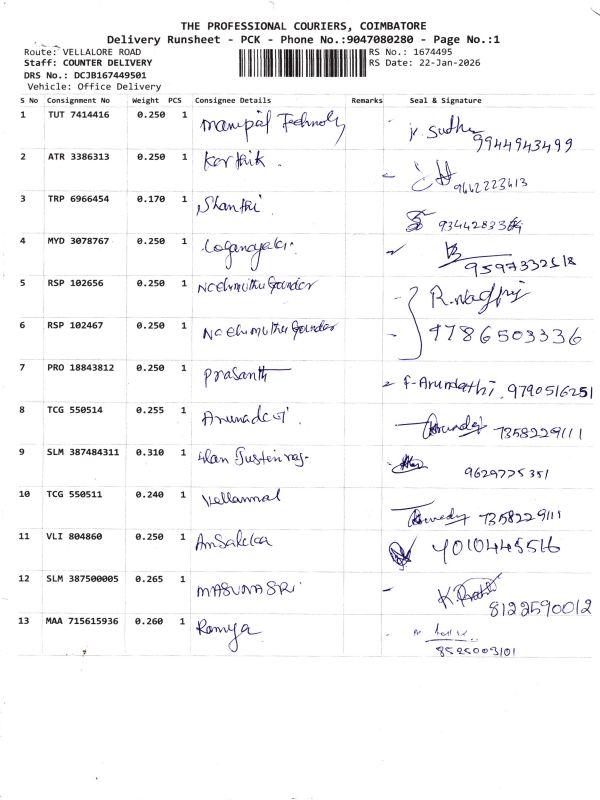 THE PROFESSIONAL COURIERS, COIMBATORE
Delivery Runsheet - PCK - Phone No.:9047080280 - Page No.:1
Route: VELLALORE ROAD
Staff: COUNTER DELIVERY
DRS No.: DCJB167449501
Vehicle: Office Delivery
RS No.: 1674495
RS Date: 22-Jan-2026
S No Consignment No Weight PCS Consignee Details Remarks Seal & Signature
1 TUT 7414416 0.250 1 Manipal Technoly 9944943499
2 ATR 3386313 0.250 1 Karthik . 9642223613
3 TRP 6966454 0.170 1 Shanthi
4 MYD 3078767 0.250 1 Loganayaki. 9597332518
5 RSP 102656 0.250 1 R.
6 RSP 102467 0.250 1 9786503336
7 PRO 18843812 0.250 1 Prasanth F-Arundathi. 9790516251
8 TCG 550514 0.255 1 Arunadevi. 7358229111
9 SLM 387484311 0.310 1 9629775351
10 TCG 550511 0.240 1 Vellammal 7358229111
11 VLI 804860 0.250 1 4010445516
12 SLM 387500005 0.265 1 8122590012
13 MAA 715615936 0.260 1 Ramya 8525003101